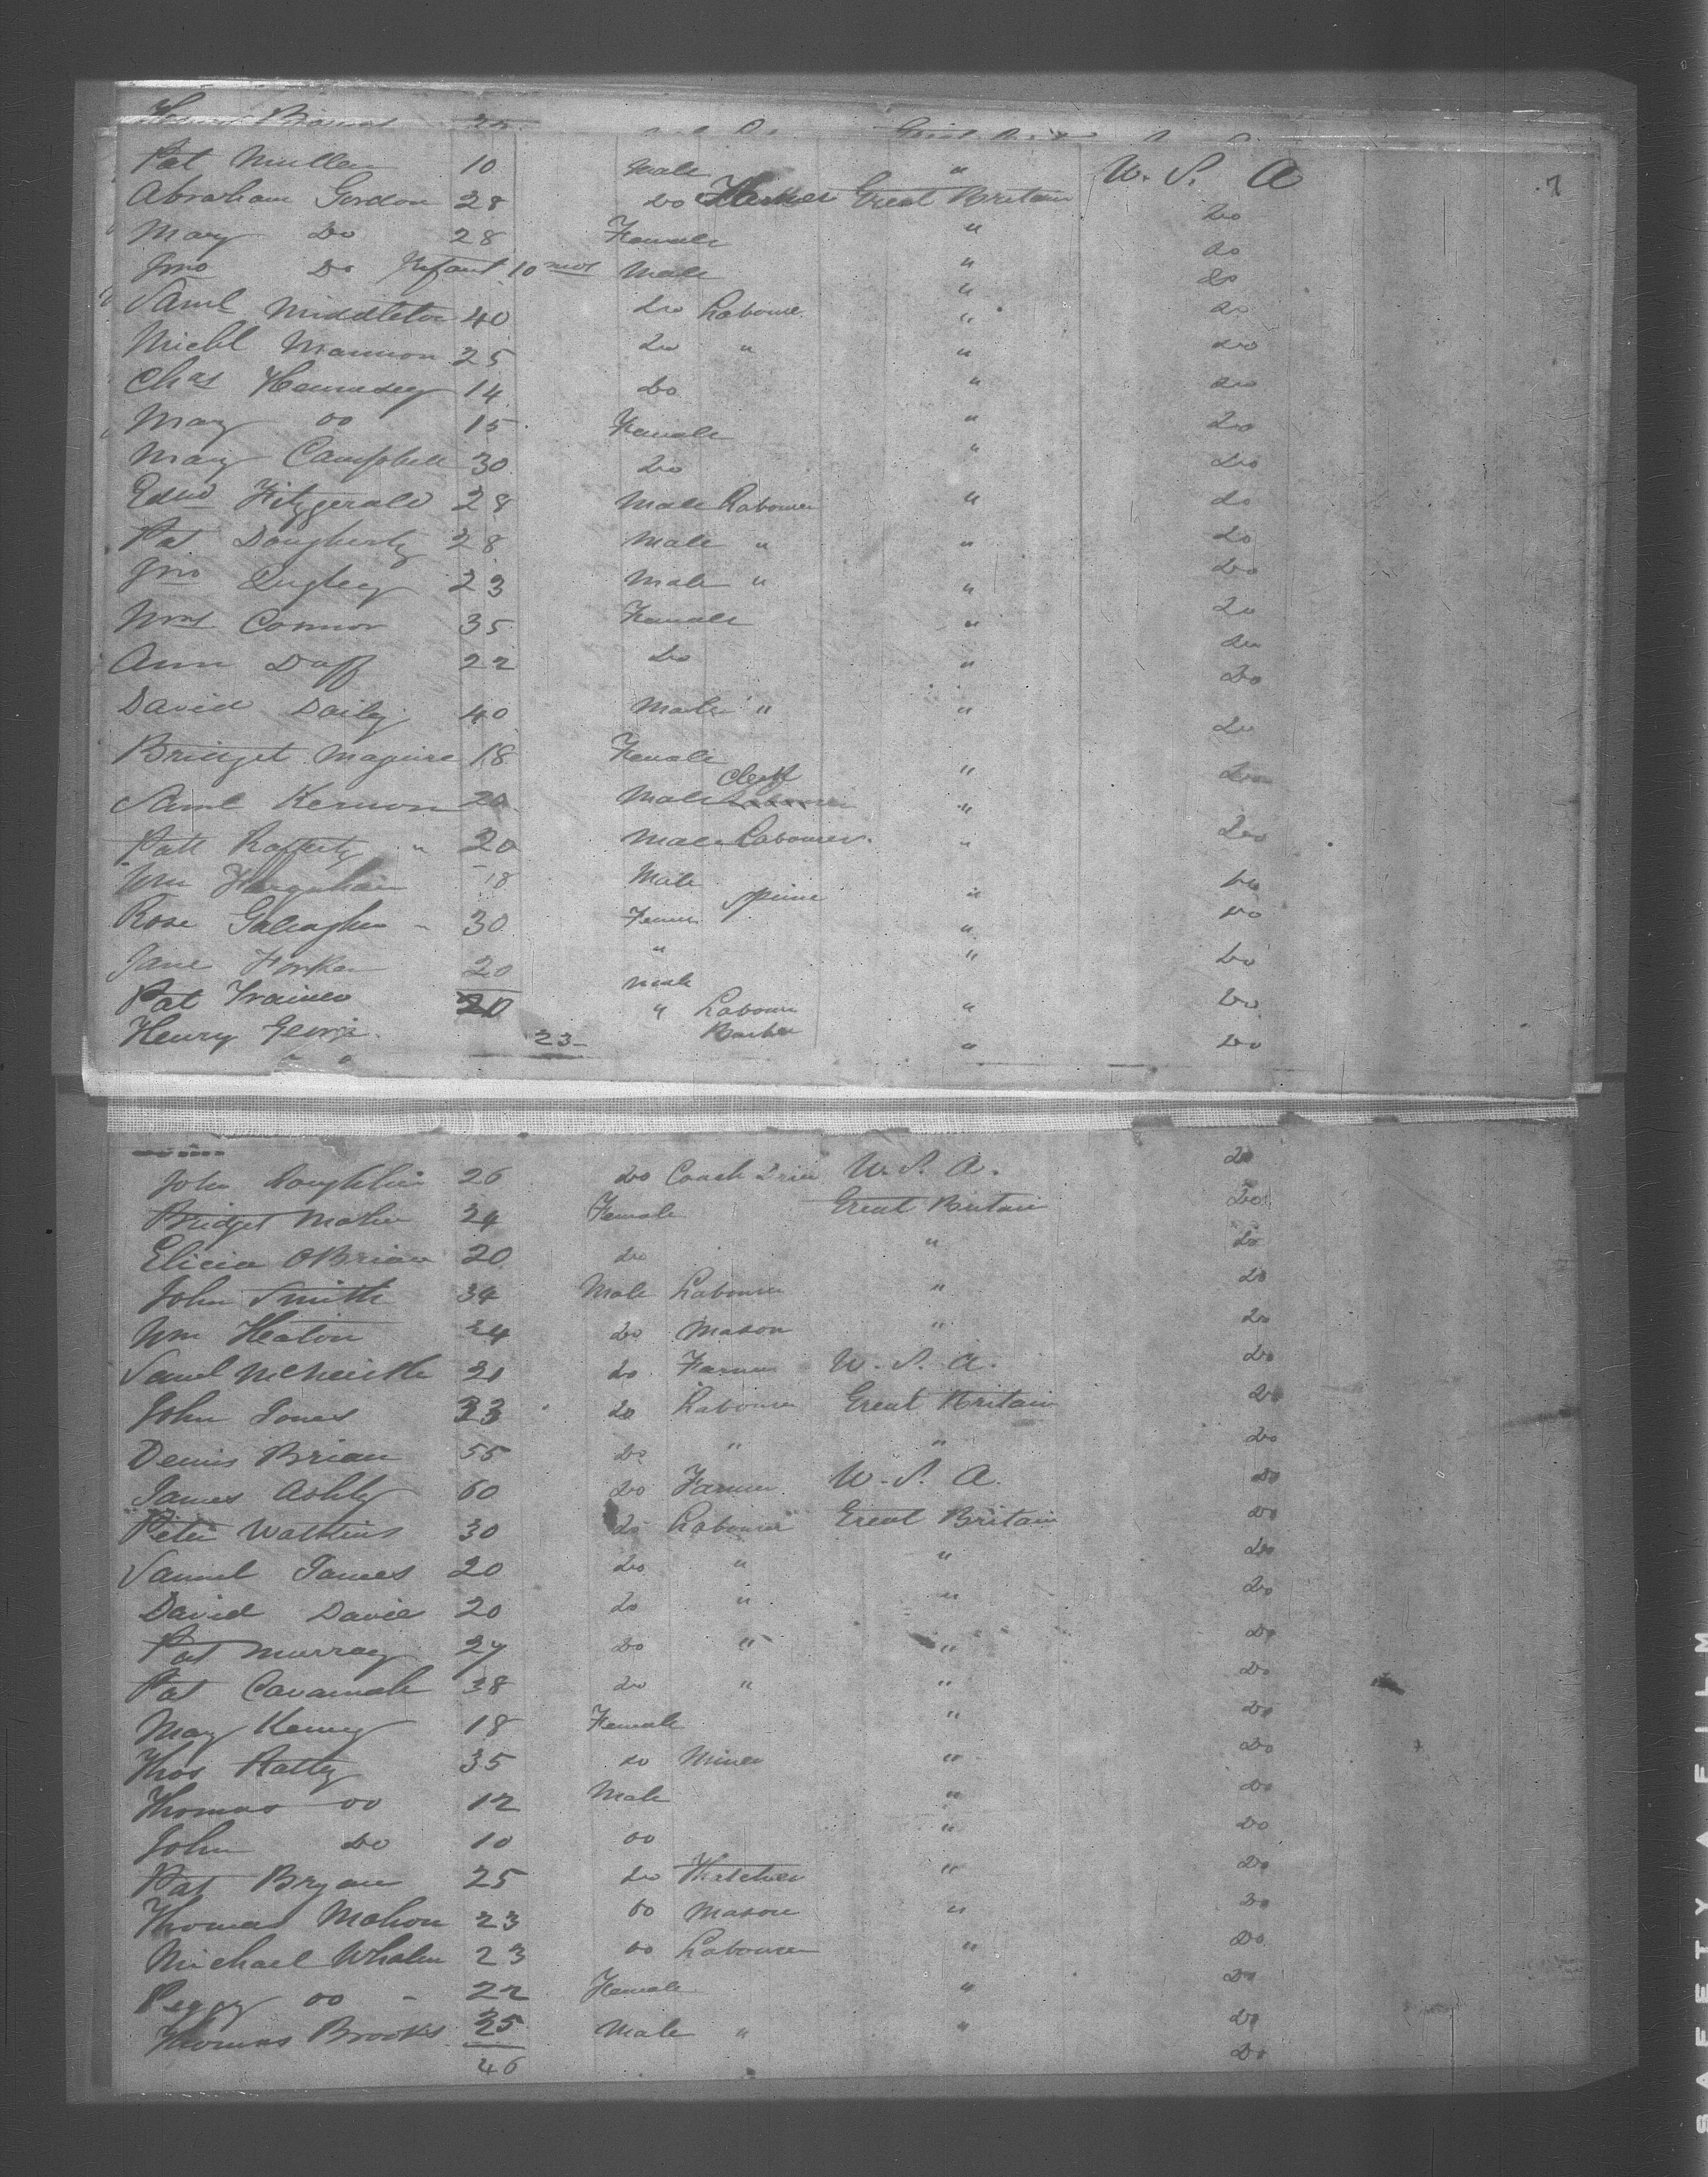 7
Pat Mullen 10 Male " U. S. A
Abraham Gordon 28 Do Great Britain Do
Mary Do 28 Female " Do
Jno Do Infant 10 mos Male " Do
Saml Middleton 40 Do Laboure " Do
Michl Mannon 25 Do " " Do
Chas Hennesey 14 Do " Do
Mary Do 15 Female " Do
Mary Campbell 30 Do " Do
Edwd Fitzgerald 28 Male Labourer " Do
Pat Dougherty 28 Male " " Do
Jno Quigley 23 Male " " Do
Mrs Connor 35 Female " Do
Ann Daff 22 Do " Do
David Daily 40 Male " " Do
Bridget Maguire 18 Female " Do
Saml Kernon 20 Male Clerk " Do
Patk Rafferty " 20 Male Labourer " Do
Wm 18 Male " Do
Rose Galeagher 30 Female " Do
Jane 20 " " Do
Pat Trainer 20 Male " Labourer " Do
Henry George 23 Barber " Do
John Loughlin 26 Do Coach Driver U. S. A. Do
Bridget Maher 24 Female Great Britain Do
Elicia OBrian 20 Do " Do
John Smith 34 Male Labourer " Do
Wm Heaton 24 Do Mason " Do
Saml 21 Do Farmer U. S. A. Do
John Jones 33 Do Labourer Great Britain Do
Denis Brian 55 Do " " Do
James Ashly 60 Do Farmer U. S. A. Do
Peter Watkins 30 Do Labourer Great Britain Do
Samuel James 20 Do " " Do
David Davies 20 Do " " Do
Pat Murray 27 Do " " Do
Pat Cavanah 38 Do " " Do
Mary Kenny 18 Female " Do
Thos Ratty 35 Do Miner " Do
Thomas Do 12 Male " Do
John Do 10 Do " Do
Pat Bryan 25 Do Thatcher " Do
Thomas Mahon 23 Do Mason " Do
Michael Whalen 23 Do Labourer " Do
Peggy Do 22 Female " Do
Thomas Brooks 25 Male " " Do
46 Do
SAFETY A FILM